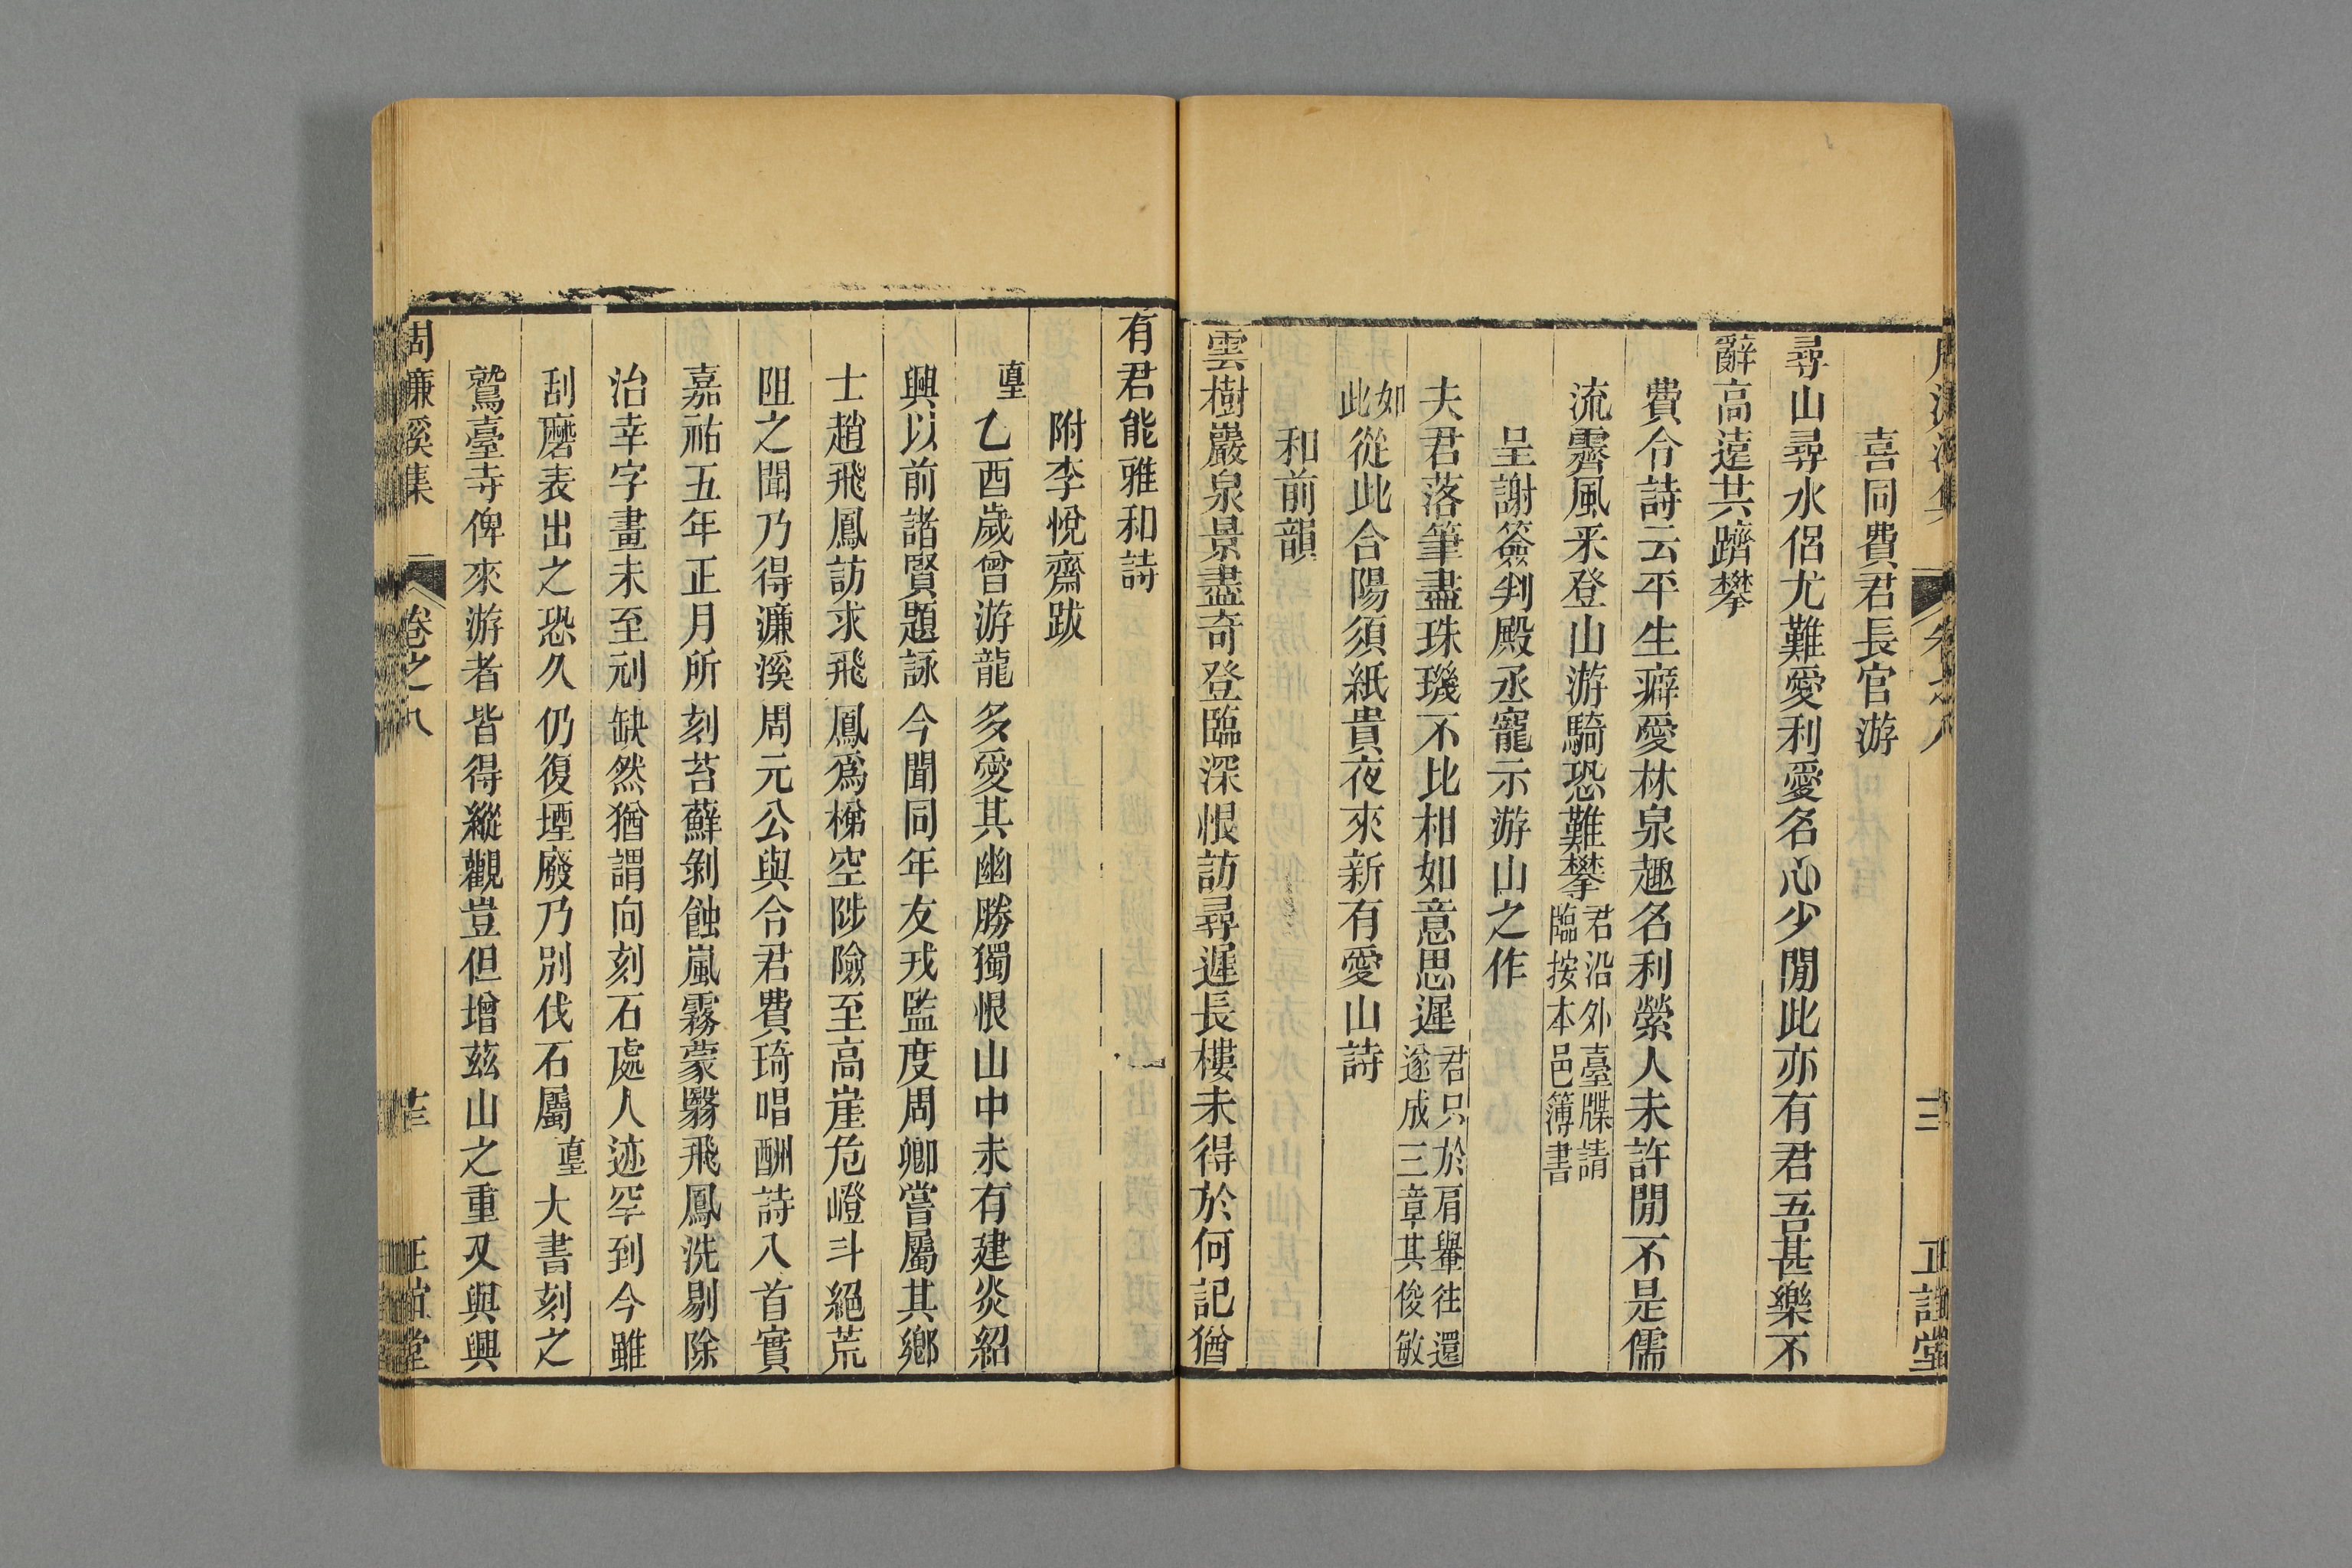 喜同費君長官游
尋山尋水侶尤難愛利愛名心少閒此亦有君吾甚樂不
辭高遠共躋攀
費令詩云平生癖愛林泉趣名利縈人未許閒不是儒
流霽風采登山游騎恐難攀君沿外臺牒請臨按本邑簿書
呈謝簽判殿丞寵示游山之作
夫君落筆盡珠璣不比相如意思遲君只於肩轝往還遂成三章其俊敏
如此從此合陽須紙貴夜來新有愛山詩
和前韻
雲樹巖泉景盡奇登臨深恨訪尋遲長樓未得於何記猶
有君能雅和詩
附李悅齋跋
乙酉歲曾游龍多愛其幽勝獨恨山中未有建炎紹
興以前諸賢題詠今聞同年友戎監度周卿嘗屬其鄉
士趙飛鳳訪求飛鳳爲梯空陟險至高崖危嶝斗絕荒
阻之閒乃得濂溪周元公與令君費琦唱酬詩八首實
嘉祐五年正月所刻苔蘚剝蝕嵐霧蒙翳飛鳳洗剔除
治幸字畫未至刓缺然猶謂向刻石處人迹罕到今雖
刮磨表出之恐久仍復堙廢乃別伐石屬大書刻之
鷲臺寺俾來游者皆得縱觀豈但增茲山之重又與興
周濂溪集
卷之八